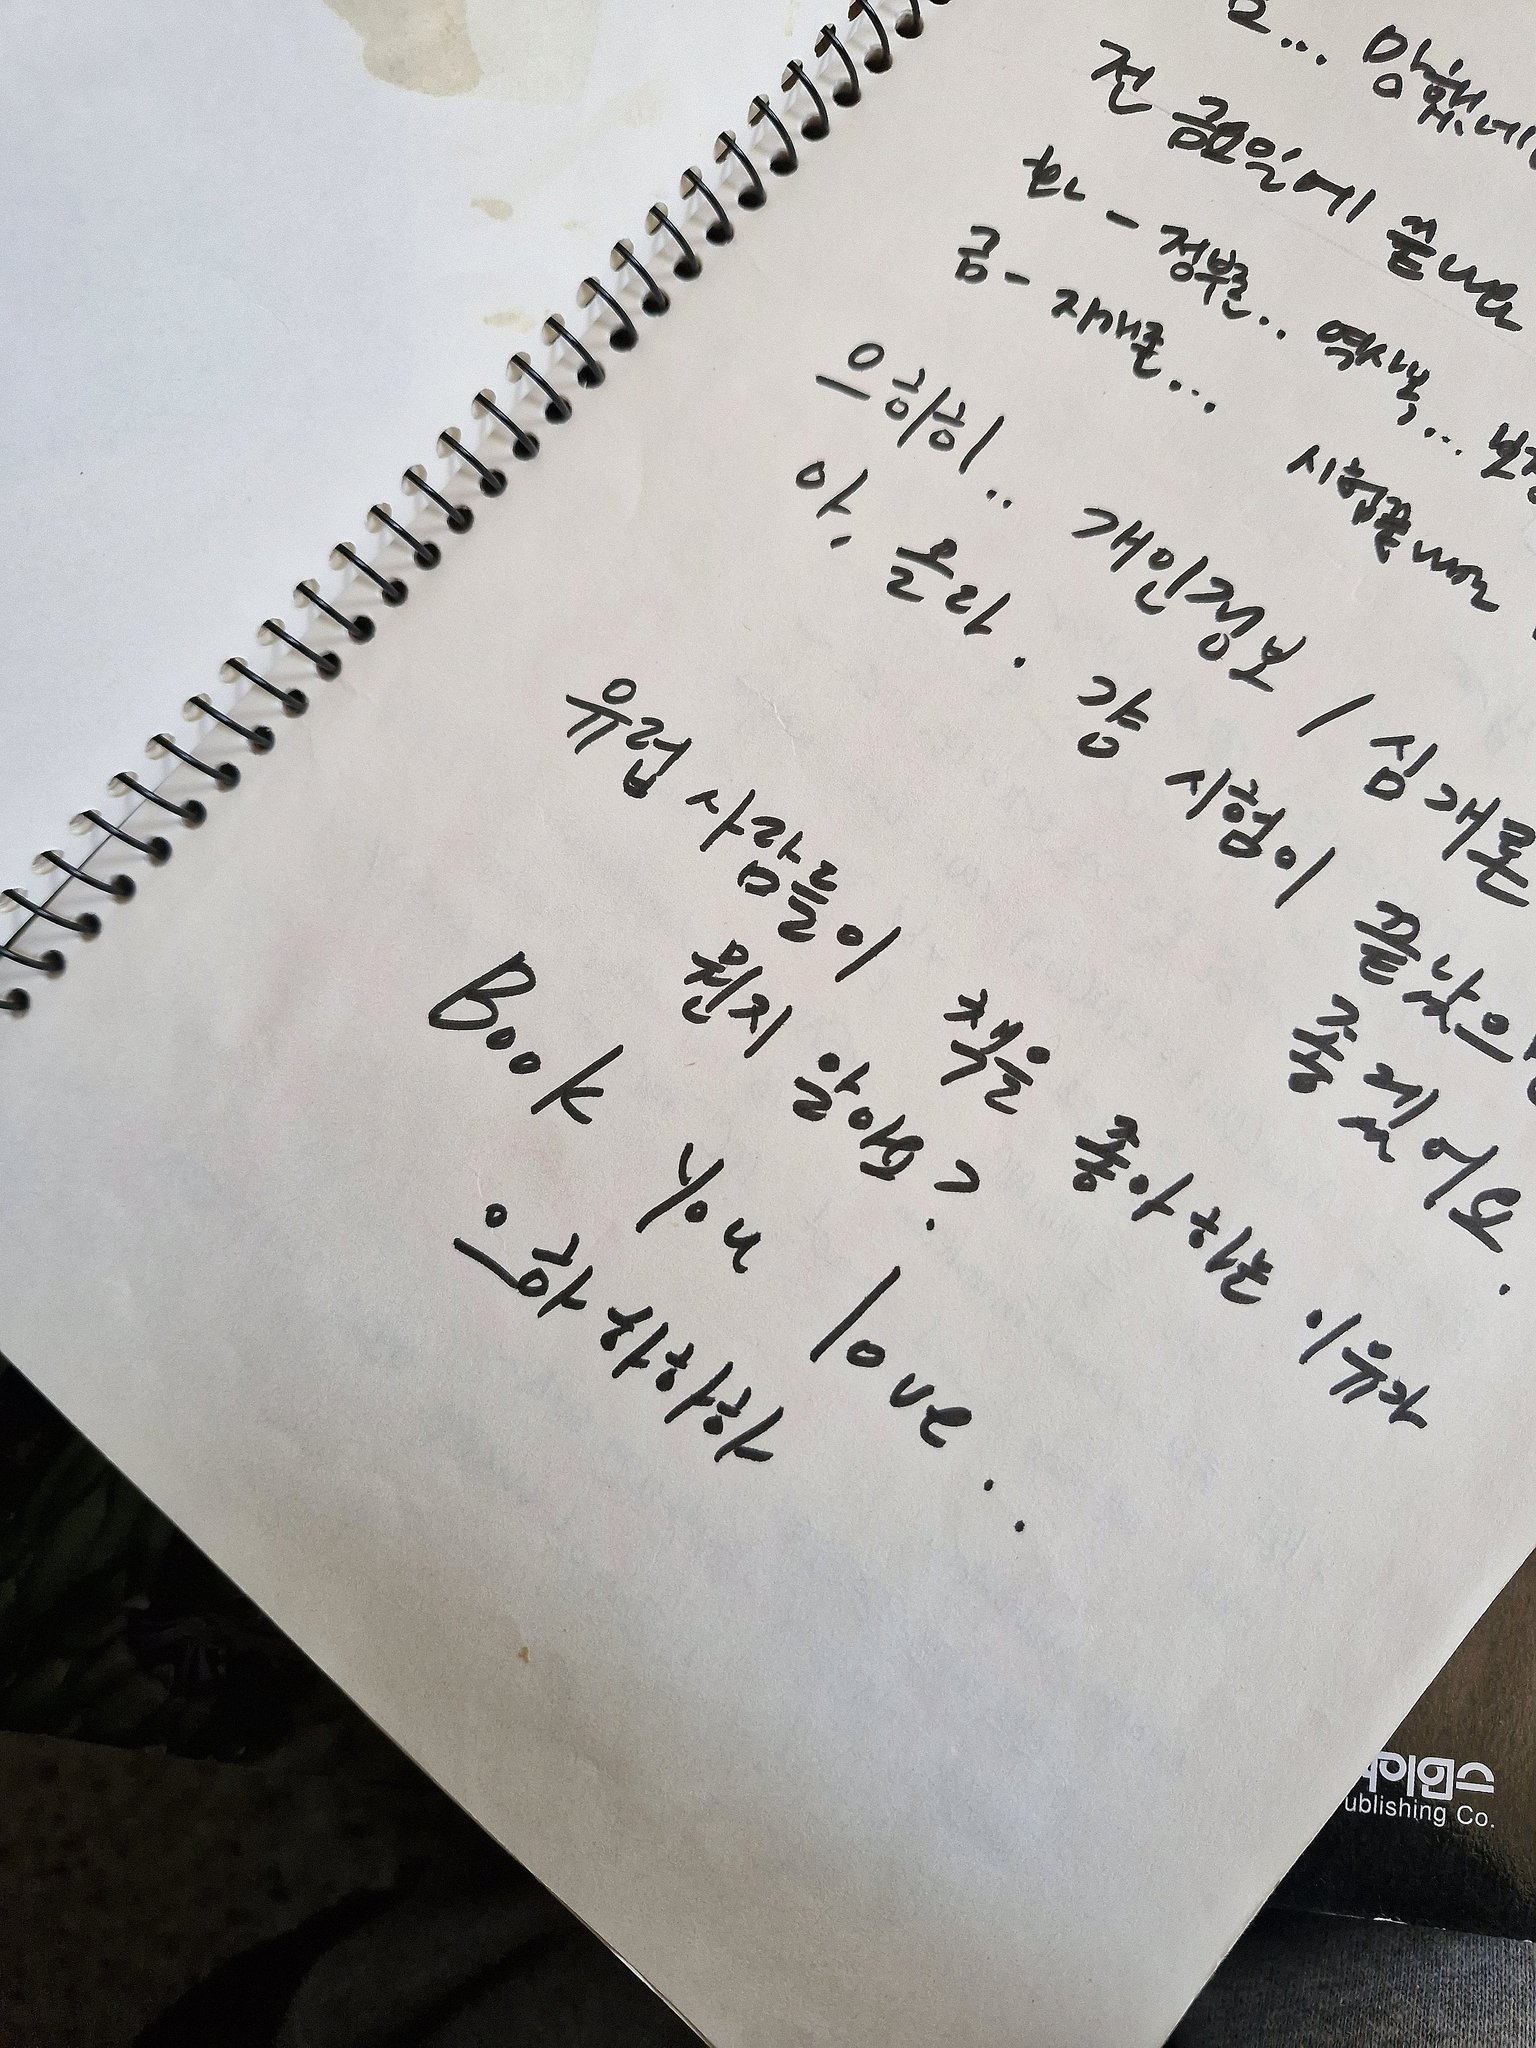 망했네
전 금요일에 끝나요
화 - 정부론.. 역사북...
금 - 재개론... 시험끝나면
으히히.. 개인정보 / 심개론
아, 몰라. 걍 시험이 끝났으
좋겠어요.
유럽 사람들이 책을 좋아하는 이유가
뭔지 알아요?
Book you love..
으하하하하하
이엠스
ublishing Co.